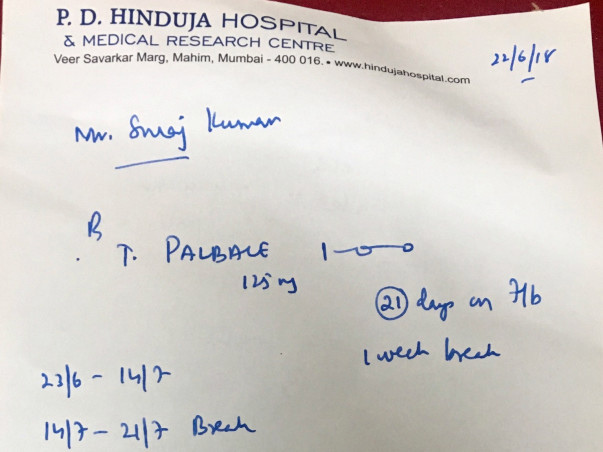 P. D. HINDUJA HOSPITAL
& MEDICAL RESEARCH CENTRE
Veer Savarkar Marg, Mahim, Mumbai - 400 016. • www.hindujahospital.com
22/6/18
Mr. Suraj Kumar
T. PALBACE 1-0-0
125 mg
21 days on
1 week break
23/6 - 14/7
14/7 - 21/7 Break